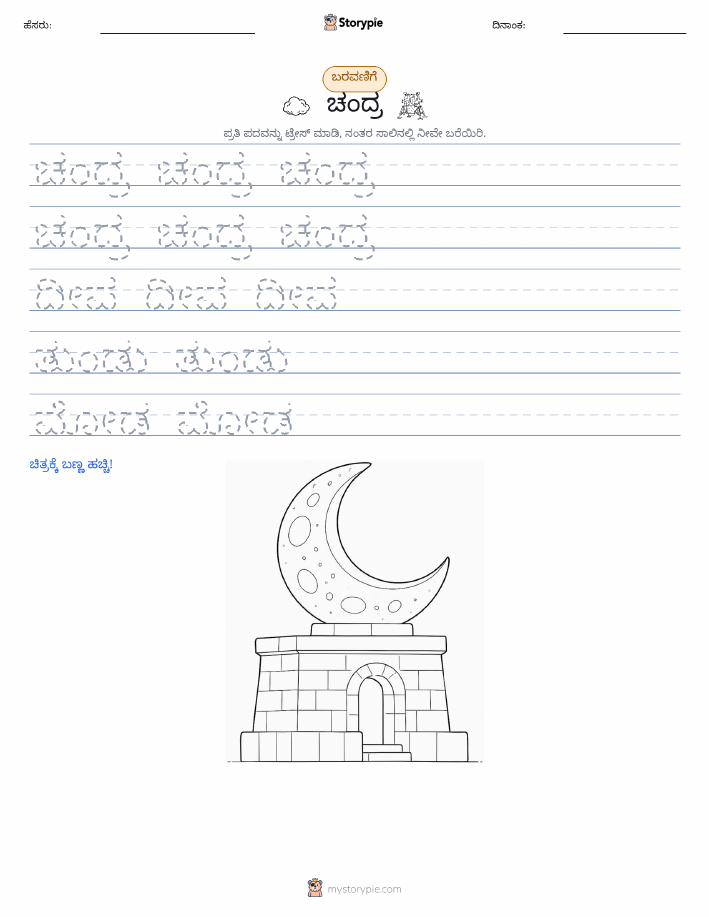 ಹೆಸರು:
Storypie
ದಿನಾಂಕ:
ಬರವಣಿಗೆ
ಚಂದ್ರ
ಪ್ರತಿ ಪದವನ್ನು ಟ್ರೇಸ್ ಮಾಡಿ, ನಂತರ ಸಾಲಿನಲ್ಲಿ ನೀವೇ ಬರೆಯಿರಿ.
ಚಂದ್ರ ಚಂದ್ರ ಚಂದ್ರ
ಚಂದ್ರ ಚಂದ್ರ ಚಂದ್ರ
ದೀಪ ದೀಪ ದೀಪ
ತುಂಡು ತುಂಡು
ಮೋಡ ಮೋಡ
ಚಿತ್ರಕ್ಕೆ ಬಣ್ಣ ಹಚ್ಚಿ!
mystorypie.com